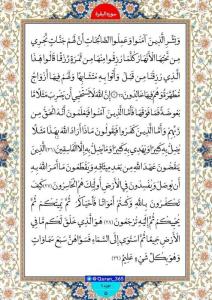 سوره البقرة
وَبَشِّرِ الَّذِينَ آمَنُوا وَعَمِلُوا الصَّالِحَاتِ أَنَّ لَهُمْ جَنَّاتٍ تَجْرِي
مِن تَحْتِهَا الْأَنْهَارُ كُلَّمَا رُزِقُوا مِنْهَا مِن ثَمَرَةٍ رِّزْقًا قَالُوا هَٰذَا
الَّذِي رُزِقْنَا مِن قَبْلُ وَأُتُوا بِهِ مُتَشَابِهًا وَلَهُمْ فِيهَا أَزْوَاجٌ
مُّطَهَّرَةٌ وَهُمْ فِيهَا خَالِدُونَ (٢٥) إِنَّ اللَّهَ لَا يَسْتَحْيِي أَن يَضْرِبَ مَثَلًا مَّا
بَعُوضَةً فَمَا فَوْقَهَا فَأَمَّا الَّذِينَ آمَنُوا فَيَعْلَمُونَ أَنَّهُ الْحَقُّ مِن
رَّبِّهِمْ وَأَمَّا الَّذِينَ كَفَرُوا فَيَقُولُونَ مَاذَا أَرَادَ اللَّهُ بِهَٰذَا مَثَلًا
يُضِلُّ بِهِ كَثِيرًا وَيَهْدِي بِهِ كَثِيرًا وَمَا يُضِلُّ بِهِ إِلَّا الْفَاسِقِينَ (٢٦) الَّذِينَ
يَنقُضُونَ عَهْدَ اللَّهِ مِن بَعْدِ مِيثَاقِهِ وَيَقْطَعُونَ مَا أَمَرَ اللَّهُ بِهِ
أَن يُوصَلَ وَيُفْسِدُونَ فِي الْأَرْضِ أُولَٰئِكَ هُمُ الْخَاسِرُونَ (٢٧) كَيْفَ
تَكْفُرُونَ بِاللَّهِ وَكُنتُمْ أَمْوَاتًا فَأَحْيَاكُمْ ثُمَّ يُمِيتُكُمْ ثُمَّ
يُحْيِيكُمْ ثُمَّ إِلَيْهِ تُرْجَعُونَ (٢٨) هُوَ الَّذِي خَلَقَ لَكُم مَّا فِي
الْأَرْضِ جَمِيعًا ثُمَّ اسْتَوَىٰ إِلَى السَّمَاءِ فَسَوَّاهُنَّ سَبْعَ سَمَاوَاتٍ
وَهُوَ بِكُلِّ شَيْءٍ عَلِيمٌ (٢٩)
@Quran_365